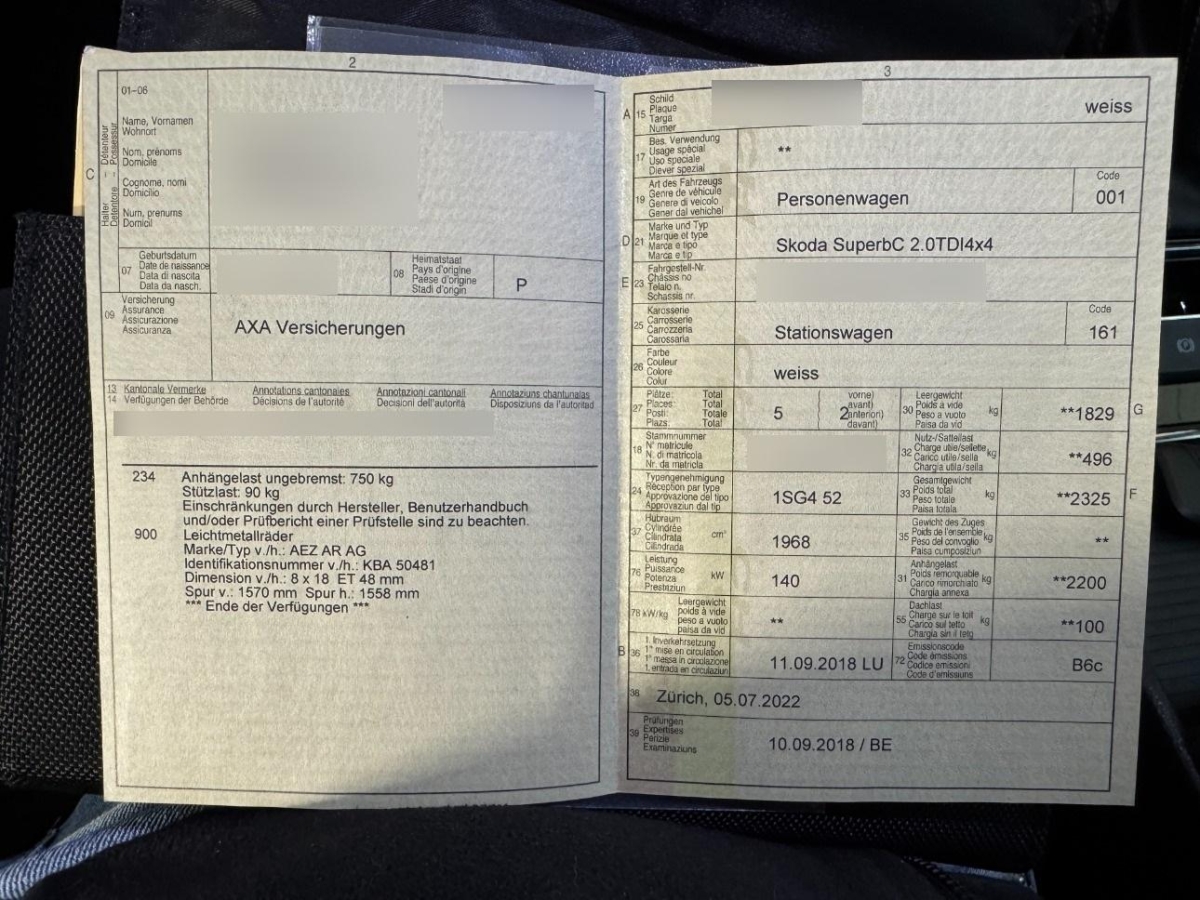 2
01-06
Halter Détenteur
Detentore Possessur
C
Name, Vornamen
Wohnort
Nom, prénoms
Domicile
Cognome, nomi
Domicilio
Num, prenums
Domicil
07
Geburtsdatum
Date de naissance
Data di nascita
Data da nasch.
08
Heimatstaat
Pays d'origine
Paese d'origine
Stadi d'origin
P
09
Versicherung
Assurance
Assicurazione
Assicuranza
AXA Versicherungen
13 Kantonale Vermerke Annotations cantonales Annotazioni cantonali Annotaziuns chantunalas
14 Verfügungen der Behörde Décisions de l'autorité Decisioni dell'autorità Disposiziuns da l'autoritad
234 Anhängelast ungebremst: 750 kg
Stützlast: 90 kg
Einschränkungen durch Hersteller, Benutzerhandbuch
und/oder Prüfbericht einer Prüfstelle sind zu beachten.
900 Leichtmetallräder
Marke/Typ v./h.: AEZ AR AG
Identifikationsnummer v./h.: KBA 50481
Dimension v./h.: 8 x 18 ET 48 mm
Spur v.: 1570 mm Spur h.: 1558 mm
*** Ende der Verfügungen ***
3
A 15
Schild
Plaque
Targa
Numer
weiss
17
Bes. Verwendung
Usage spécial
Uso speciale
Diever spezial
**
19
Art des Fahrzeugs
Genre de véhicule
Genere di veicolo
Gener dal vehichel
Personenwagen
Code
001
D 21
Marke und Typ
Marque et type
Marca e tipo
Marca e tip
Skoda SuperbC 2.0TDI4x4
E 23
Fahrgestell-Nr.
Châssis no
Telaio n.
Schassis nr.
25
Karosserie
Carrosserie
Carrozzeria
Carossaria
Stationswagen
Code
161
26
Farbe
Couleur
Colore
Colur
weiss
27
Plätze: Total
Places: Total
Posti: Totale
Plazs: Total
5
vorne)
avant)
2 anteriori)
davant)
30
Leergewicht
Poids à vide
Peso a vuoto
Paisa da vid
kg
**1829
G
18
Stammnummer
N° matricule
N. di matricola
Nr. da matricla
32
Nutz-/Sattellast
Charge utile/sellette
Carico utile/sella
Chargia utila/sella
kg
**496
24
Typengenehmigung
Réception par type
Approvazione del tipo
Approvaziun dal tip
1SG4 52
33
Gesamtgewicht
Poids total
Peso totale
Paisa totala
kg
**2325
F
37
Hubraum
Cylindrée
Cilindrata
Cilindrada
cm³
1968
35
Gewicht des Zuges
Poids de l'ensemble
Peso del convoglio
Paisa cumposiziun
kg
**
76
Leistung
Puissance
Potenza
Prestaziun
kW
140
31
Anhängelast
Poids remorquable
Carico rimorchiato
Chargia annexa
kg
**2200
78 kW/kg
Leergewicht
poids à vide
peso a vuoto
paisa da vid
**
55
Dachlast
Charge sur le toit
Carico sul tetto
Chargia sin il tetg
kg
**100
B 36
1. Inverkehrsetzung
1re mise en circulation
1a messa in circolazione
1. entrada en circulaziun
11.09.2018 LU
72
Emissionscode
Code émissions
Codice emissioni
Code d'emissiuns
B6c
38
Zürich, 05.07.2022
39
Prüfungen
Expertises
Perizie
Examinaziuns
10.09.2018 / BE